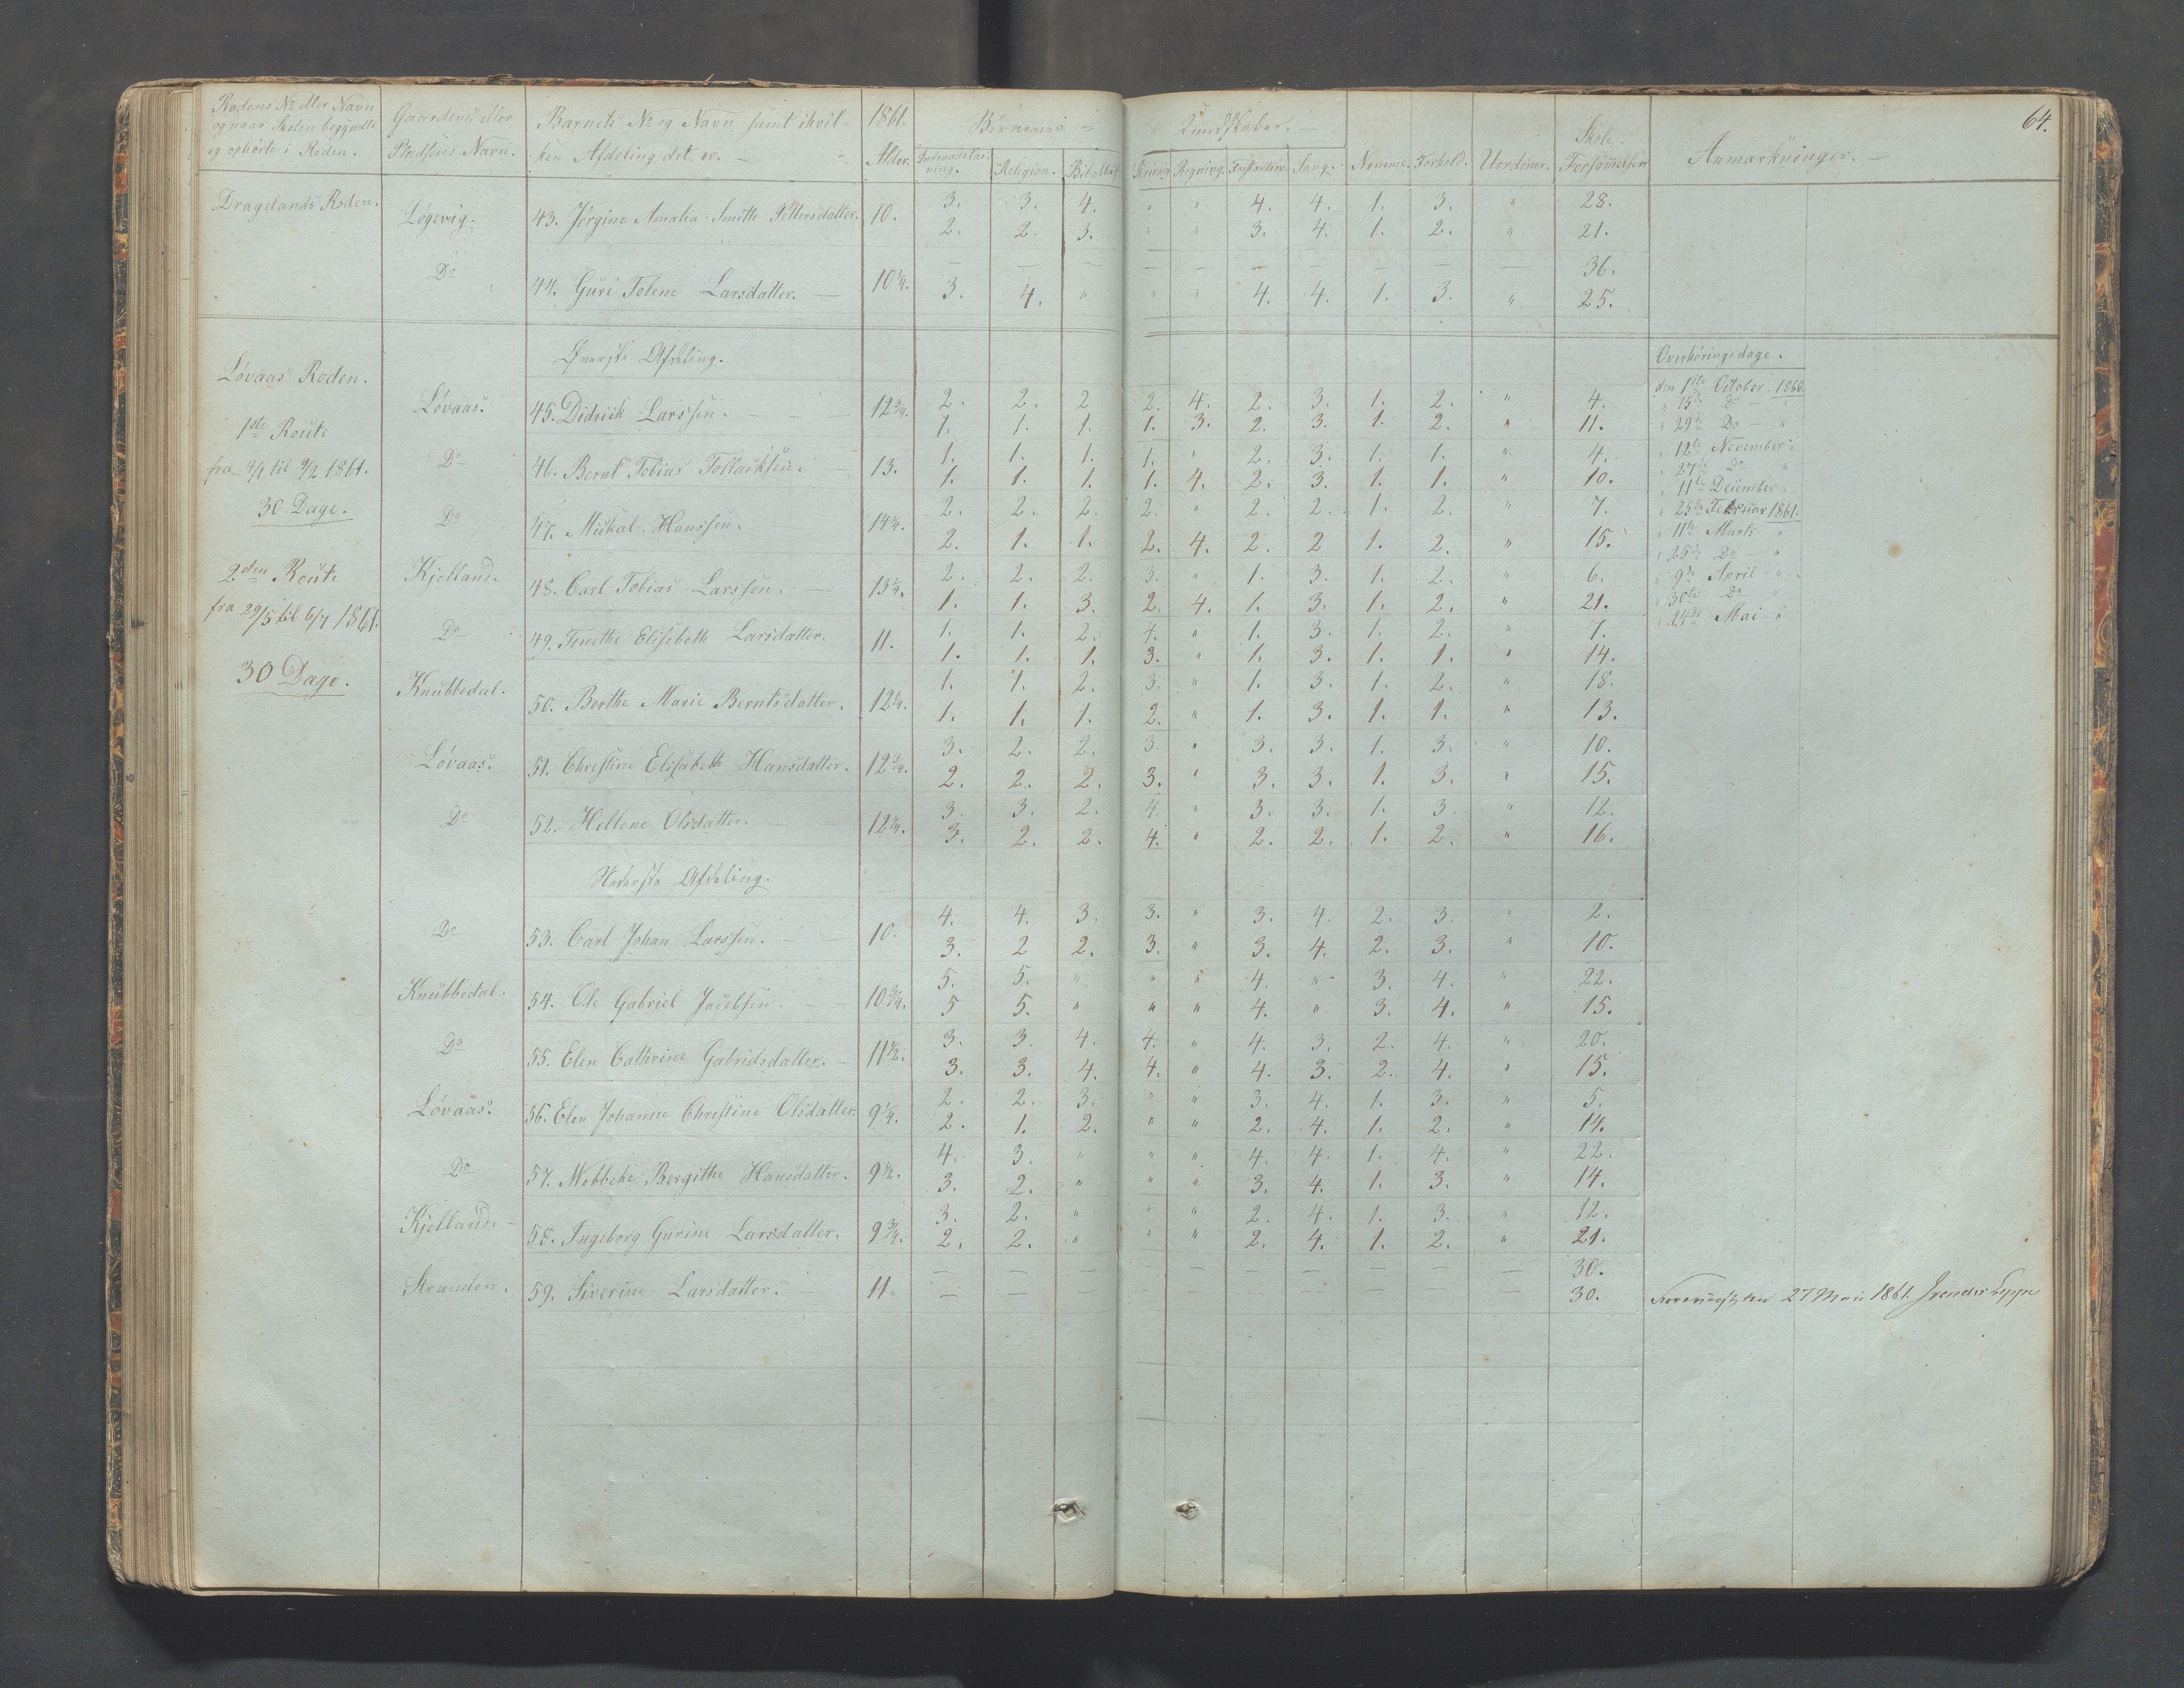 64.
Rodens No eller Navn og naar Skolen begyndte og ophörte i Roden. Gaardens eller Pladsens Navn. Barnets No og Navn samt i hvilken Afdeling det er. 1861. Alder. Börnenes Kundskaber. Indenadslæsning. Religion. Bib. Skrivning Regning. Forstandsöv. Sang. Nemme. Forhold. Uordener. Skole-Forsömmelser Anmærkninger.
Dragelands Roden. Løgevig. 43. Jørgine Amalia Smith Pettersdatter. 10. 3. 3. 4. " " 4. 4. 1. 3. " 28.
2. 2. 3. " " 3. 4. 1. 2. " 21.
Do 44. Guri Tolene Larsdatter. 10¼. — — — — — — — — — — 36.
3. 4. " " " 4. 4. 1. 3. " 25.
Øverste Afdeling.
Overhøringsdage.
den 1ste October 1860.
" 15de Do "
" 29de Do "
" 12te November "
" 27de Do "
" 11te December
" 25de Februar 1861.
" 11te Marts "
" 25de Do "
" 9de April "
" 30te Do "
" 14de Mai "
Løvaas Roden.
1ste Route
fra 4/1 til 9/2 1861.
30 Dage.
2den Route
fra 29/5 til 6/7 1861.
30 Dage.
Løvaas. 45. Didrick Larssen. 12¾. 2. 2. 2 2. 4. 2. 3. 1. 2. " 4.
1. 1. 1. 1. 3. 2. 3. 1. 2. " 11.
Do 46. Bernt Tobias Tollacksen. 13. 1. 1. 1. 1. " 2. 3. 1. 1. " 4.
1. 1. 1. 1. 4. 2. 3. 1. 1. " 10.
Do 47. Mickal Hanssen. 14¼. 2. 2. 2. 2. " 2. 2. 1. 2. " 7.
2. 1. 1. 2. 4. 2. 2 1. 2. " 15.
Kjelland. 48. Carl Tobias Larssen. 13¼. 2. 2. 2. 3. " 1. 3. 1. 2. " 6.
1. 1. 3. 2. 4. 1. 3. 1. 2. " 21.
Do 49. Tenethe Elisabeth Larsdatter. 11. 1. 1. 2. 4. " 1. 3. 1. 2. " 7.
1. 1. 1. 3. " 1. 3. 1. 1. " 14.
Knubbedal. 50. Berthe Marie Berntsdatter. 12¼. 1. 1. 2. 3. " 1. 3. 1. 2. " 18.
1. 1. 1. 2. " 1. 3. 1. 1. " 13.
Løvaas. 51. Christine Elisabeth Hansdatter. 12¾. 3. 2. 2. 3. " 3. 3. 1. 3. " 10.
2. 2. 2. 3. " 3. 3. 1. 3. " 15.
Do 52. Hellene Olsdatter. 12¼. 3. 3. 2. 4. " 3. 3. 1. 3. " 12.
3. 2. 2. 4. " 2. 2. 1. 2. " 16.
Nederste Afdeling.
Do 53. Carl Johan Larssen. 10. 4. 4. 3. 3. " 3. 4. 2. 3. " 2.
3. 2 2. 3. " 3. 4. 2. 3. " 10.
Knubbedal. 54. Ole Gabriel Jacobsen. 10¾. 5. 5. " " " 4. " 3. 4. " 22.
5 5. " " " 4. " 3. 4. " 15.
Do 55. Elen Cathrine Gabrielsdatter. 11½. 3. 3. 4. 4. " 4. 3. 2. 4. " 20.
3. 3. 4. 4. " 4. 3. 2. 4. " 15.
Løvaas. 56. Elen Johanne Christine Olsdatter. 9¼. 2. 2. 3. " " 3. 4. 1. 3. " 5.
2. 1. 2. " " 2. 4. 1. 2. " 14.
Do 57. Mebbeke Bergithe Hansdatter. 9½. 4. 3. " " " 4. 4. 1. 4. " 22.
3. 2. " " " 3. 4. 1. 3. " 14.
Kjelland. 58. Ingeborg Gurine Larsdatter. 9¾. 3. 2. " " " 2. 4. 1. 3. " 12.
2. 2. " " " 2. 4. 1. 2. " 21.
Stranden. 59. Siverine Larsdatter. 11. — — — — — — — — — — 30.
— — — — — — — — — — 30.
27 Mai 1861.